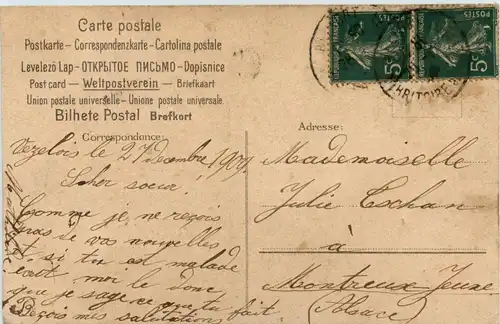 Carte postale
Postkarte – Correspondenzkarte – Cartolina postale
Levelező Lap – ОТКРЫТОЕ ПИСЬМО – Dopisnice
Post card — Weltpostverein — Briefkaart
Union postale universelle – Unione postale universale.
Bilhete Postal Brefkort
Correspondance:
Vezelois le 27 Decembre 1909.
Cher soeur!
Comme je ne reçois
pas de vos nouvelles
et si tu est malade
moi le donc
que je sage ce que tu fait
Reçois mes salutations
Adresse:
Mademoiselle
Julie Tschan
à
Montreux Jeune
(Alsace)
POSTES
5
POSTES
5